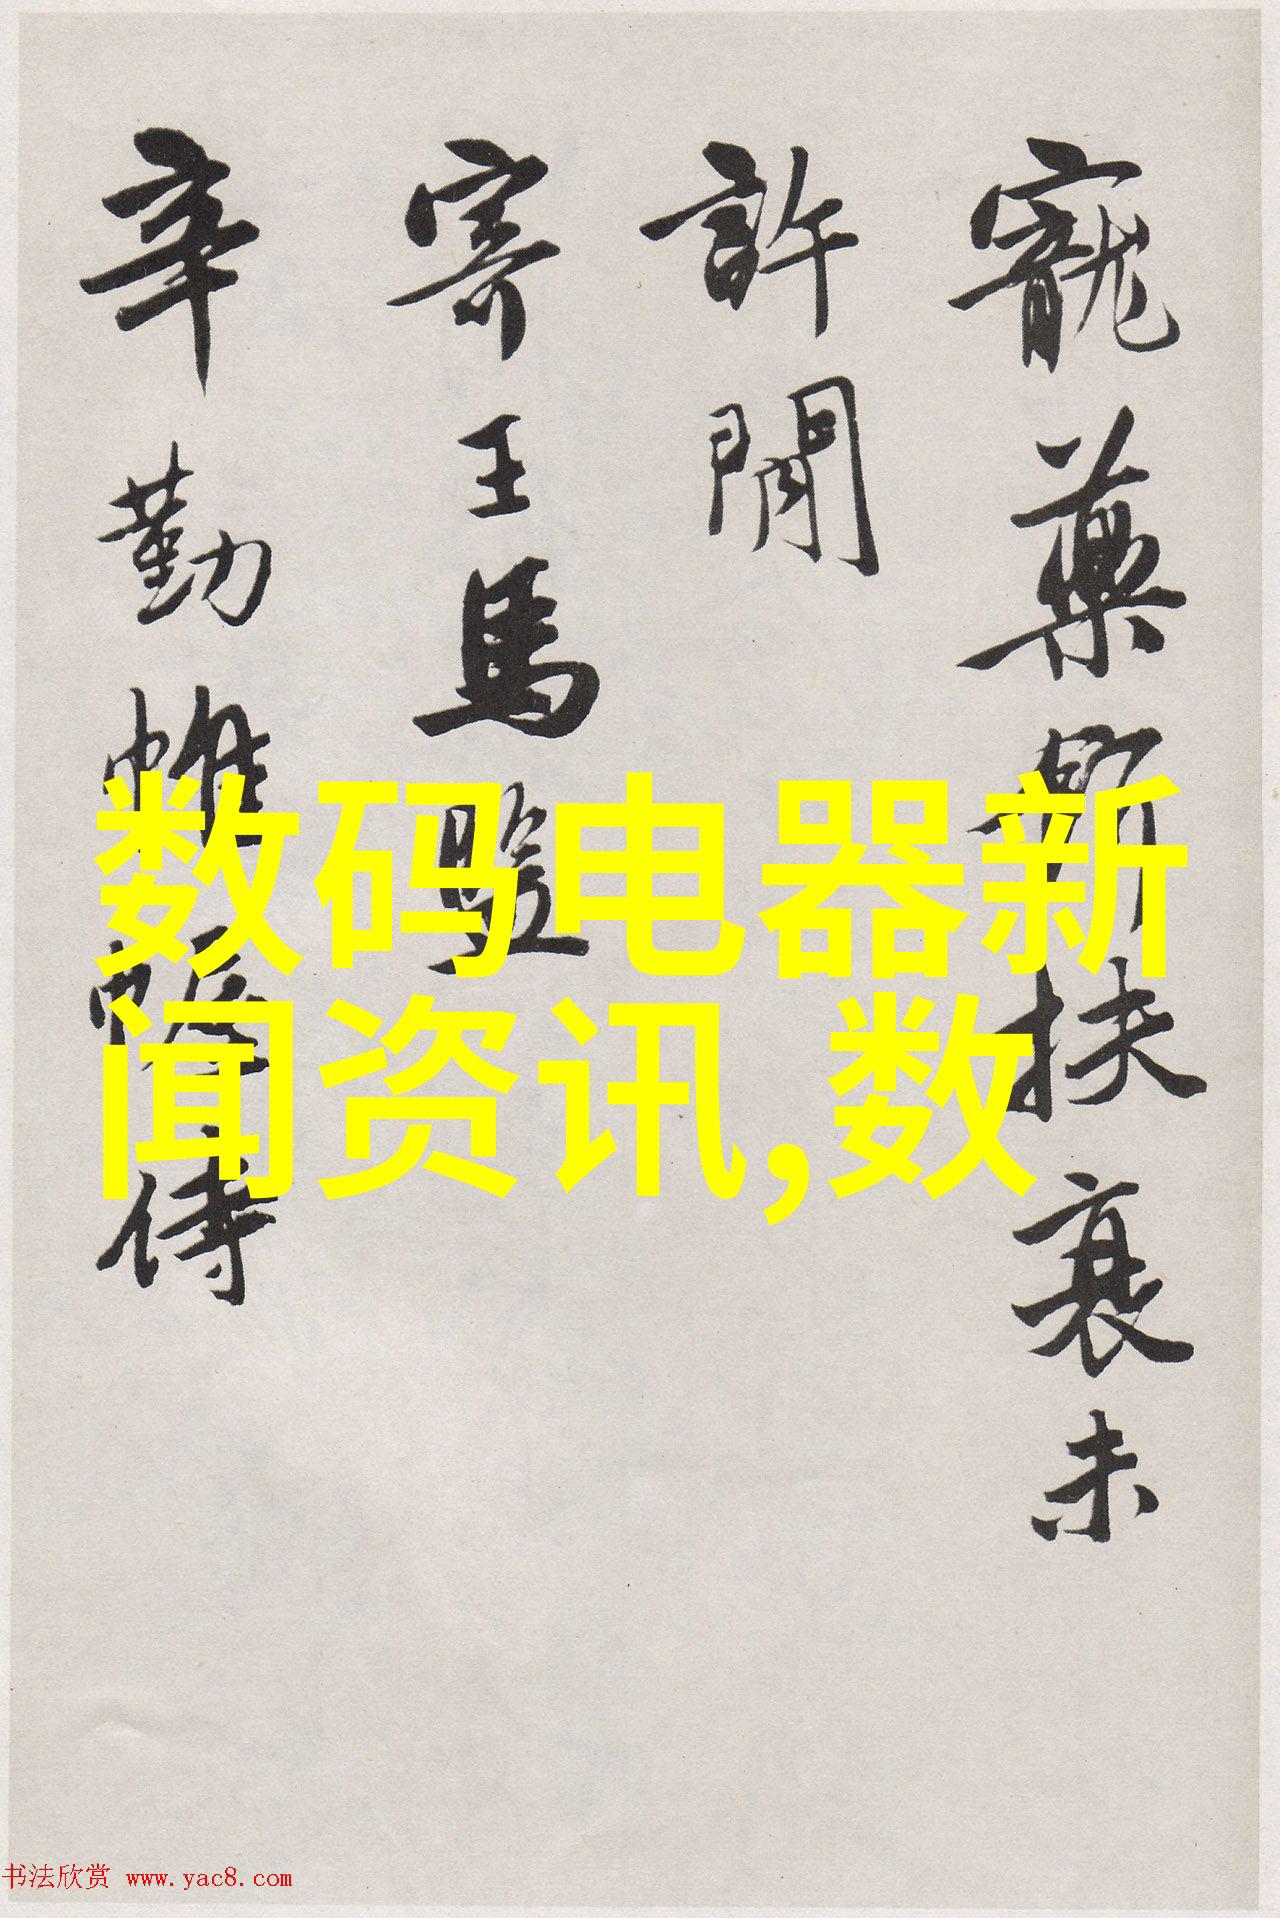 寵藥斯扶衰未
許閒
寄王馬監
辛勤帷幄侍
数码电器新
闻资讯,数
书法欣赏 www.yac8.com